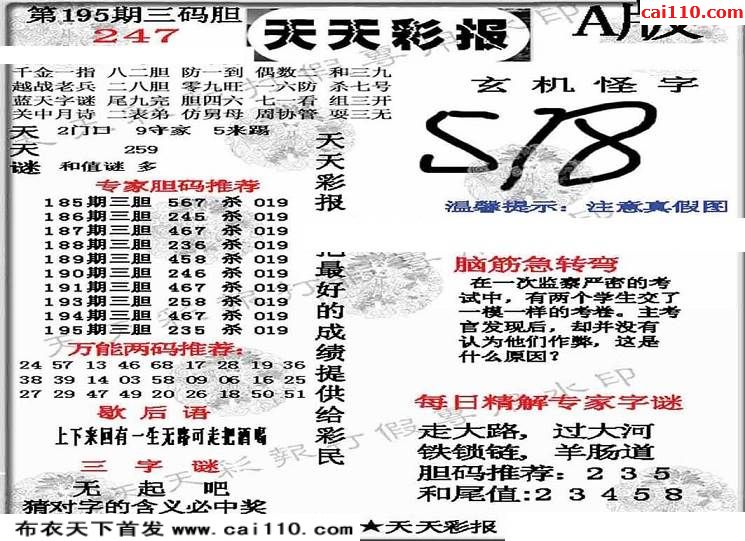 第195期三码胆
247
天天彩报
A版
cai110.com
千金一指 八二胆 防一到 偶数二 和三九
越战老兵 二八胆 零九旺 一六防 杀七号
蓝天字谜 尾九完 胆四六 七一看 组三开
关中月诗 二表弟 仿舅母 周协管 耍三无
天 2门口 9守家 5来踢
天 259
谜 和值谜 多
专家胆码推荐
185期三胆 567 杀 019
186期三胆 245 杀 019
187期三胆 467 杀 019
188期三胆 236 杀 019
189期三胆 458 杀 019
190期三胆 246 杀 019
191期三胆 467 杀 019
193期三胆 258 杀 019
194期三胆 467 杀 019
195期三胆 235 杀 019
万能两码推荐:
24 57 13 46 68 17 28 19 36
38 39 14 03 58 09 06 16 25
27 29 47 49 20 26 18 50 51
歇后语
上下来回有一生无路可走把酒喝
三字谜
无起吧
猜对字的含义必中奖
天天彩报
把最好的成绩提供给彩民
玄机怪字
578
温馨提示：注意真假图
脑筋急转弯
在一次监察严密的考
试中，有两个学生交了
一模一样的考卷。主考
官发现后，却并没有
认为他们作弊，这是
什么原因？
每日精解专家字谜
走大路，过大河
铁锁链，羊肠道
胆码推荐：2 3 5
和尾值:2 3 4 5 8
布衣天下首发 www.cai110.com
★天天彩报